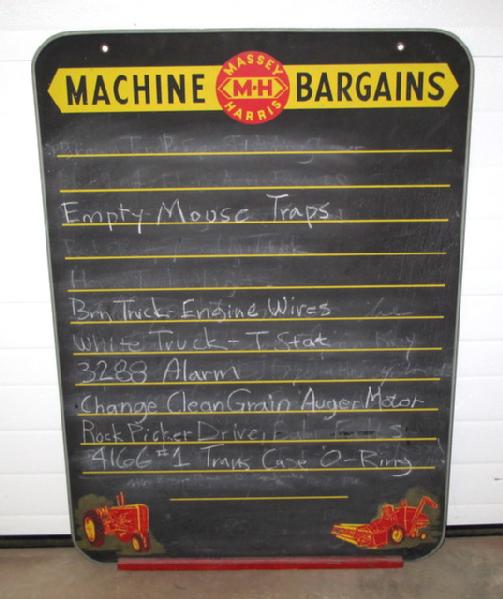 MACHINE MASSEY M-H HARRIS BARGAINS
Empty Mouse Traps
Brn Truck-Engine Wires
White Truck-T Stat
3288 Alarm
Change Clean Grain Auger Motor
Rock Picker Drive,
4166 #1 Trans Case O-Ring